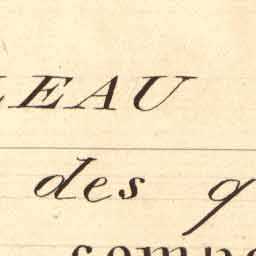 LEAU
des q
comp